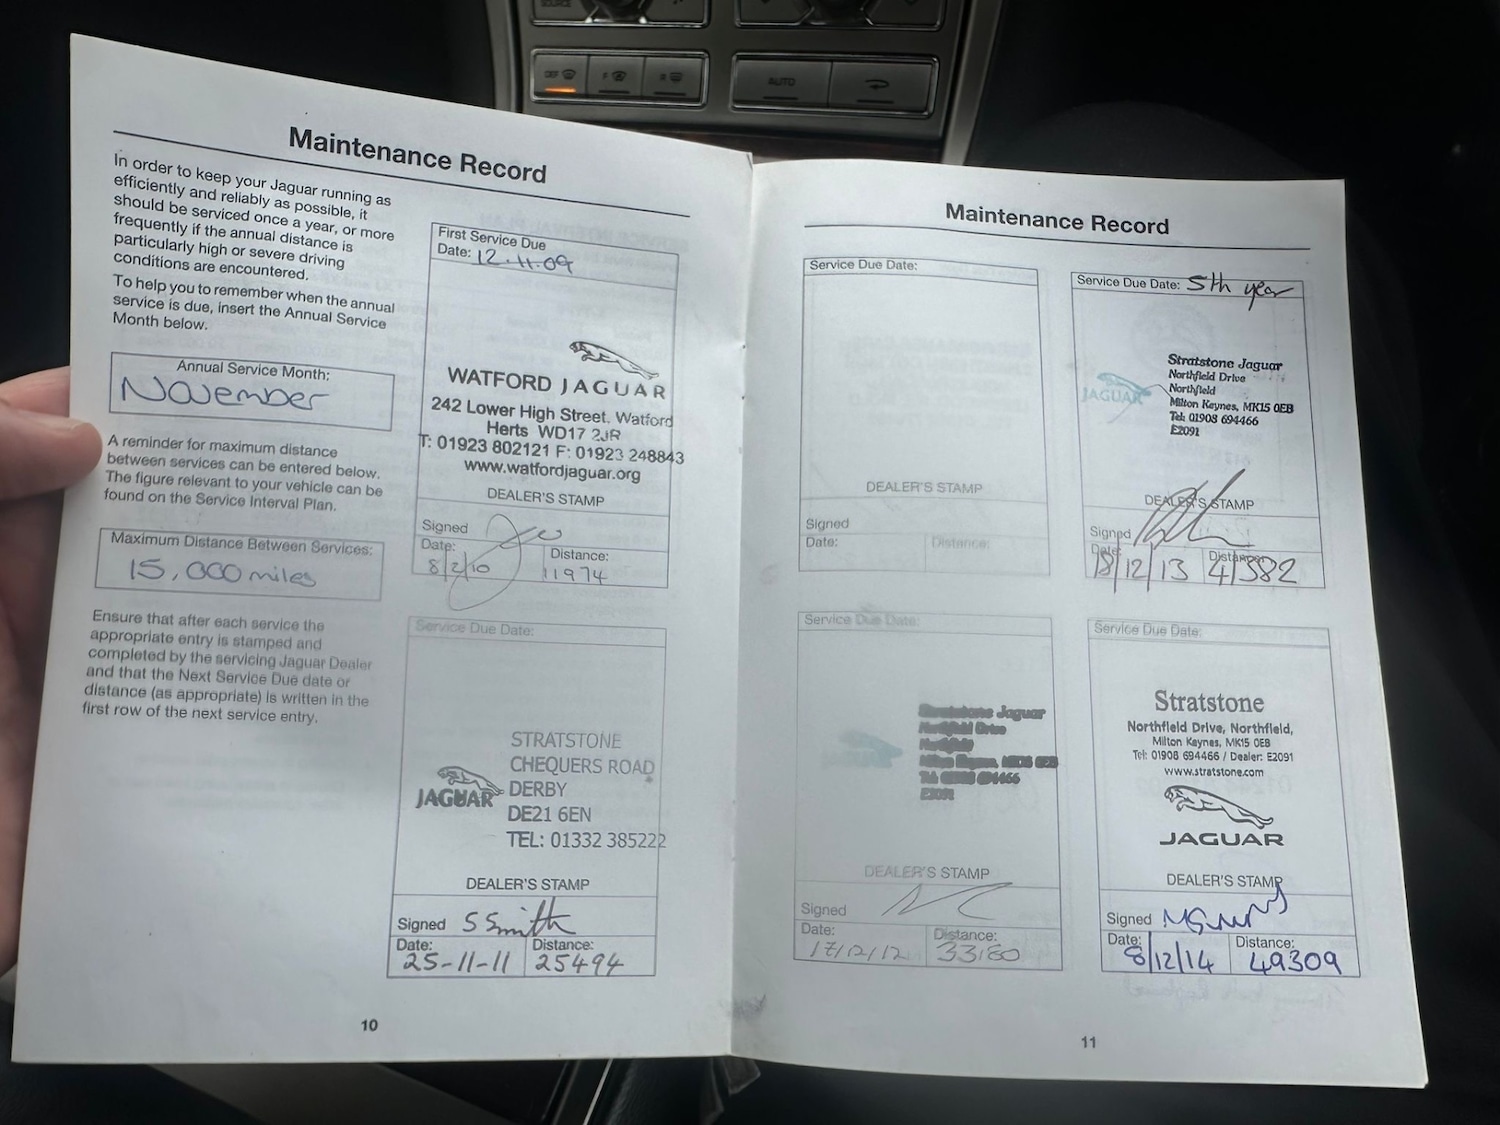 SOURCE
DEF F R
AUTO
Maintenance Record
In order to keep your Jaguar running as
efficiently and reliably as possible, it
should be serviced once a year, or more
frequently if the annual distance is
particularly high or severe driving
conditions are encountered.
To help you to remember when the annual
service is due, insert the Annual Service
Month below.
Annual Service Month:
November
A reminder for maximum distance
between services can be entered below.
The figure relevant to your vehicle can be
found on the Service Interval Plan.
Maximum Distance Between Services:
15,000 miles
Ensure that after each service the
appropriate entry is stamped and
completed by the servicing Jaguar Dealer
and that the Next Service Due date or
distance (as appropriate) is written in the
first row of the next service entry.
First Service Due
Date: 12.11.09
WATFORD JAGUAR
242 Lower High Street, Watford
Herts WD17 2JR
T: 01923 802121 F: 01923 248843
www.watfordjaguar.org
DEALER'S STAMP
Signed
Date: Distance:
8/2/10 11974
Service Due Date:
STRATSTONE
CHEQUERS ROAD
JAGUAR DERBY
DE21 6EN
TEL: 01332 385222
DEALER'S STAMP
Signed S Smith
Date: Distance:
25-11-11 25494
10
Maintenance Record
Service Due Date:
DEALER'S STAMP
Signed
Date: Distance:
Service Due Date:
Stratstone Jaguar
Northfield Drive
Northfield
Milton Keynes, MK15 0EB
Tel: 01908 694466
E2091
DEALER'S STAMP
Signed
Date: Distance:
17/12/12
Service Due Date: 5th year
Stratstone Jaguar
Northfield Drive
JAGUAR Northfield
Milton Keynes, MK15 0EB
Tel: 01908 694466
E2091
DEALER'S STAMP
Signed
Date: Distance:
18/12/13 41382
Service Due Date:
Stratstone
Northfield Drive, Northfield,
Milton Keynes, MK15 0EB
Tel: 01908 694466 / Dealer: E2091
www.stratstone.com
JAGUAR
DEALER'S STAMP
Signed
Date: Distance:
8/12/14 49309
11